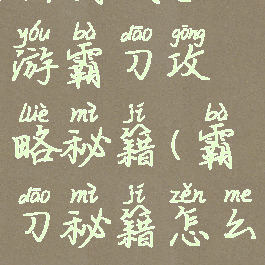 yóu bà dāo gōng
游霸刀攻
lüè mì jí bà
略秘籍(霸
dāo mì jí zěn me
刀秘籍怎么